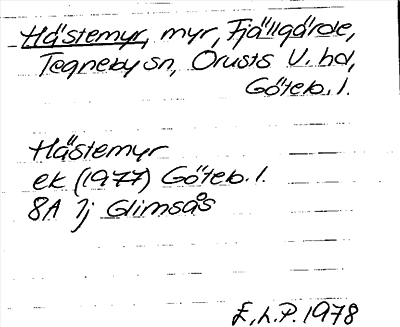 Hästemyr, myr, Fjällgärde,
Tegneby sn, Orusts V. hd,
Göteb. l.
Hästemyr
ek (1977) Göteb. l.
8A 7j Glimsås
E.L.P. 1978